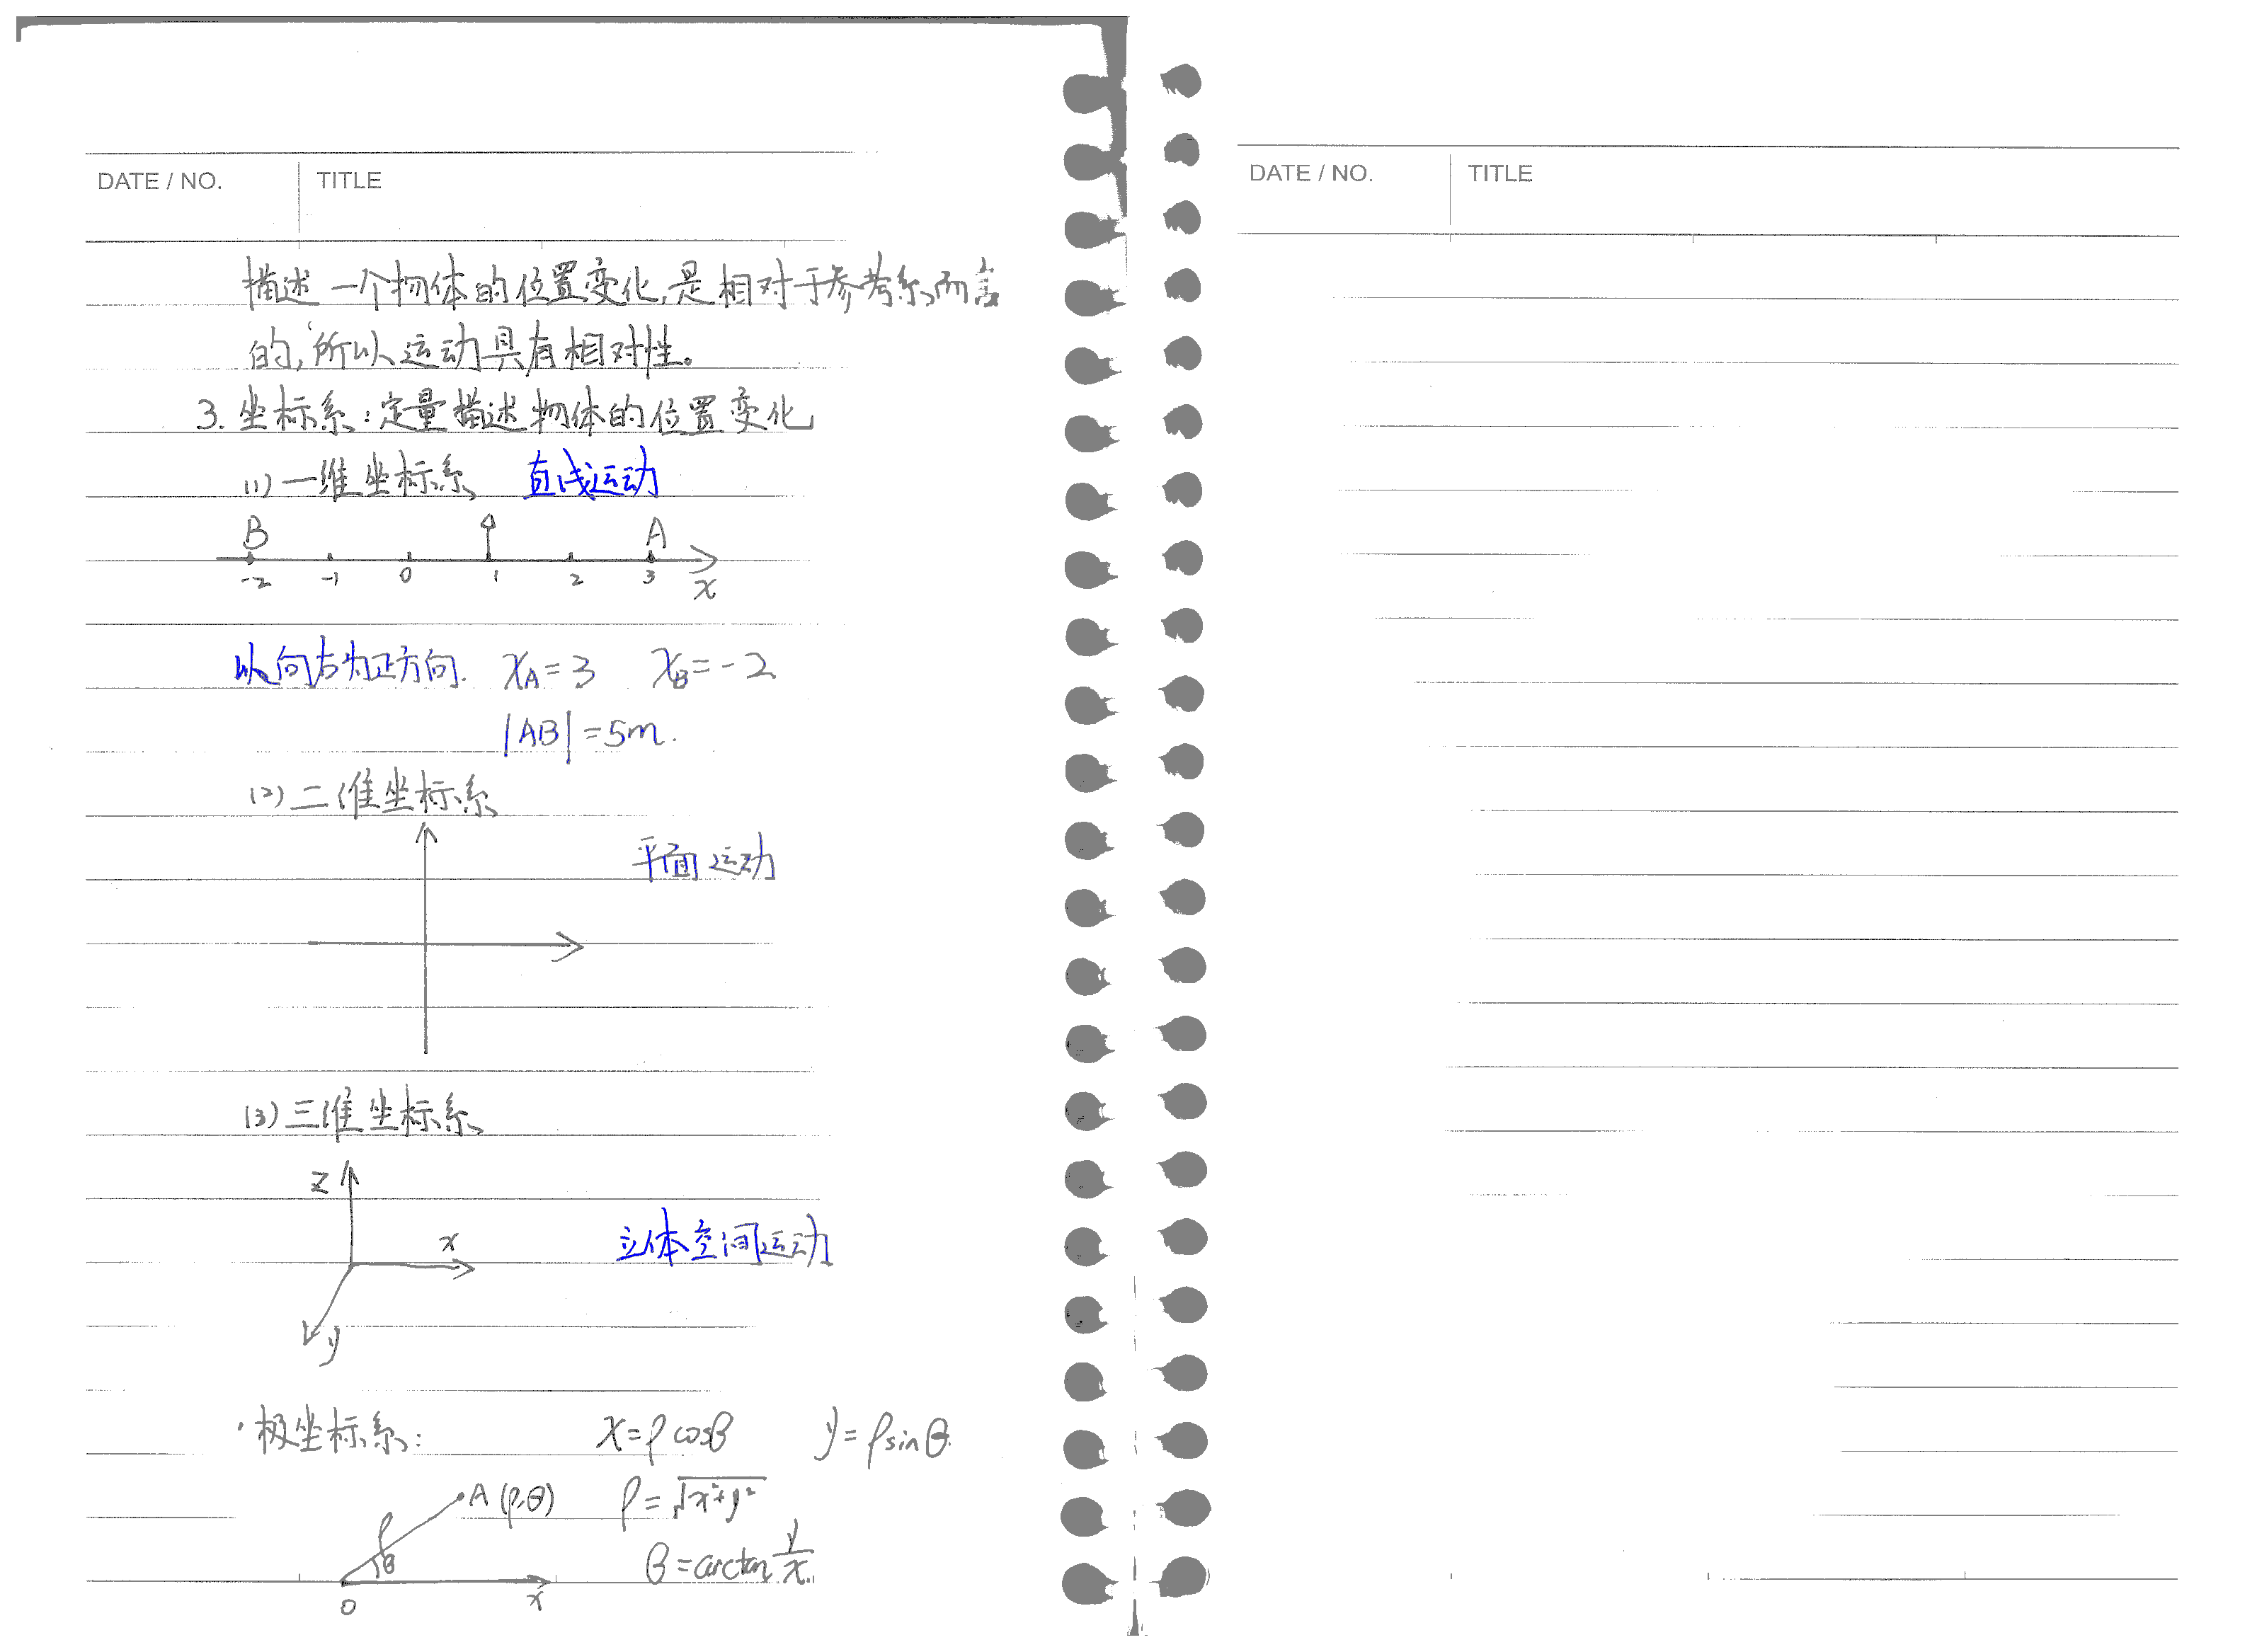 DATE / NO. TITLE
描述一个物体的位置变化,是相对于参考系而言
的,所以运动具有相对性。
3. 坐标系:定量描述物体的位置变化
(1) 一维坐标系 直线运动
B A
-2 -1 0 1 2 3 x
以向右为正方向. x_A=3 x_B=-2
|AB|=5m.
(2) 二维坐标系
平面运动
(3) 三维坐标系
z
x 立体空间运动
y
·极坐标系: x=ρcosθ y=ρsinθ.
A(ρ,θ) ρ=√x²+y²
ρ θ θ=arctan y/x.
0 x
DATE / NO. TITLE